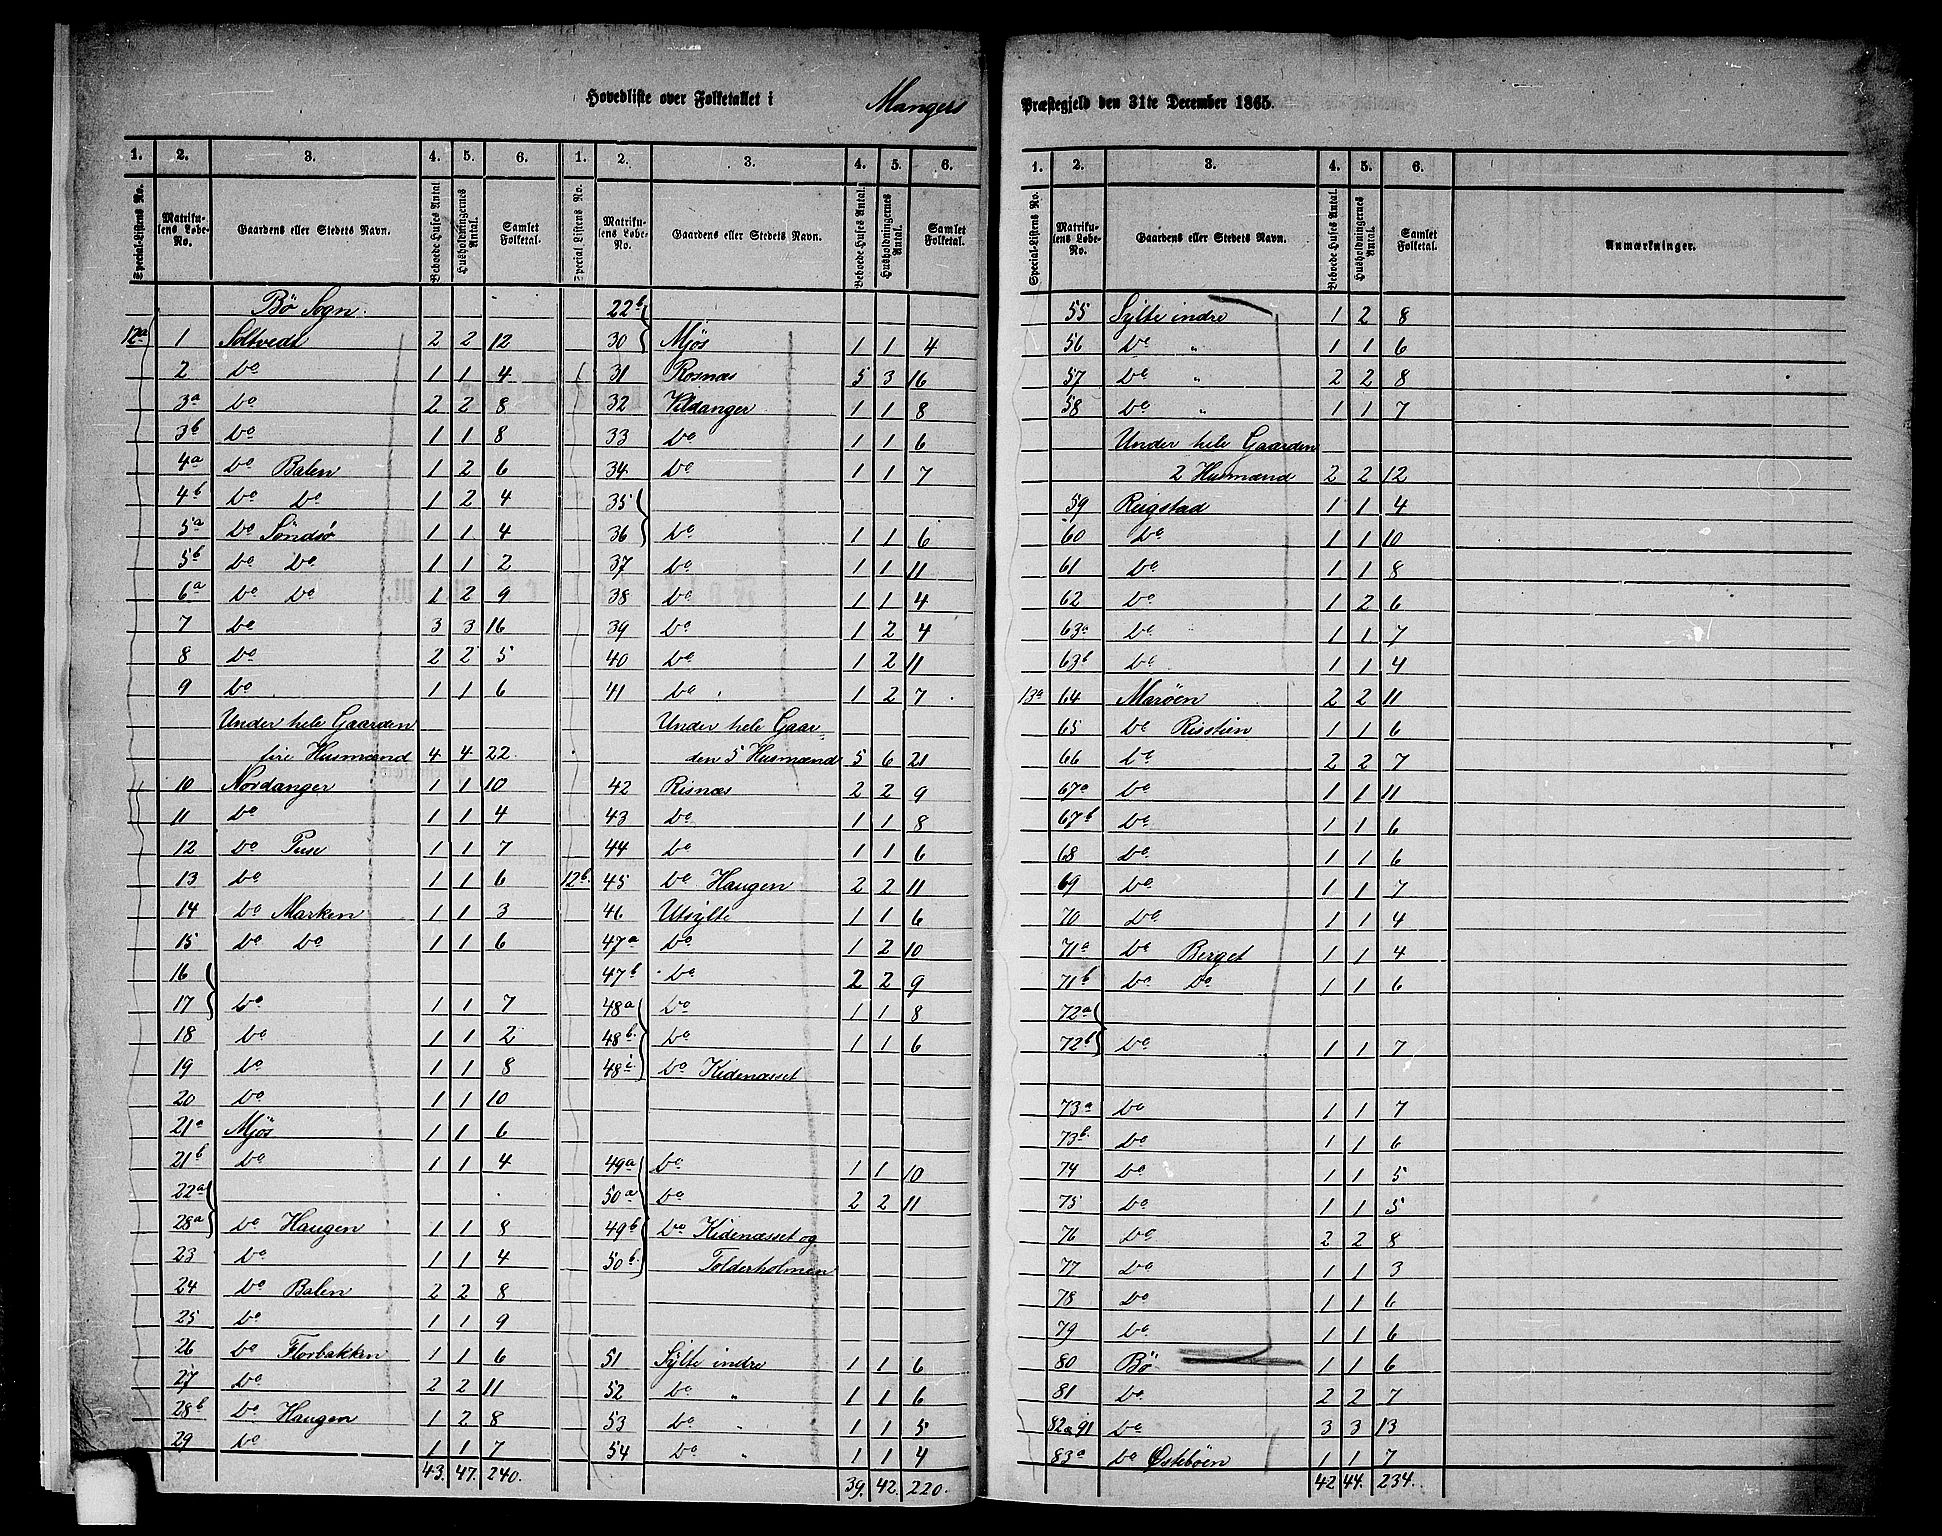 Hovedliste over Folketallet i Mangers Præstegjeld den 31te December 1865.
1. 2. 3. 4. 5. 6.
Special-Listens No. Matrikulens Løbe-No. Gaardens eller Stedets Navn. Beboede Huses Antal. Husholdningernes Antal. Samlet Folketal.
Bø Sogn.
12a 1 Soltvedt 2 2 12
2 Do 1 1 4
3a Do 2 2 8
3b Do 1 1 8
4a Do Balen 1 2 6
4b Do Do 1 2 4
5a Do Söndsö 1 1 4
5b Do Do 1 1 2
6a Do Do 1 2 9
7 Do 3 3 16
8 Do 2 2 5
9 Do 1 1 6
Under hele Gaarden
fire Husmænd 4 4 22
10 Nordanger 1 1 10
11 Do 1 1 4
12 Do Puse 1 1 7
13 Do 1 1 6
14 Do Marken 1 1 3
15 Do Do 1 1 6
16
17 Do 1 1 7
18 Do 1 1 2
19 Do 1 1 8
20 Do 1 1 10
21a Mjös 1 1 6
21b Do 1 1 4
22a
28a Do Haugen 1 1 8
23 Do 1 1 4
24 Do Balen 2 2 8
25 Do 1 1 9
26 Do Florbakken 1 1 6
27 Do 2 2 11
28b Do Haugen 1 2 8
29 Do 1 1 7
43. 47. 240.
1. 2. 3. 4. 5. 6.
Special Listens No. Matrikulens Løbe-No. Gaardens eller Stedets Navn. Beboede Huses Antal. Husholdningernes Antal. Samlet Folketal.
22b
30 Mjös 1 1 4
31 Rosnæs 5 3 16
32 Vildanger 1 1 8
33 Do 1 1 6
34 Do 1 1 7
35
36 Do 1 1 6
37 Do 1 1 11
38 Do 1 1 4
39 Do 1 2 4
40 Do 1 2 11
41 Do 1 2 7
Under hele Gaar-
den 5 Husmænd 5 6 21
42 Risnæs 2 2 9
43 Do 1 1 8
44 Do 1 1 6
12b. 45 Do Haugen 2 2 11
46 Utsylte 1 1 6
47a Do 1 2 10
47b Do 2 2 9
48a Do 1 1 8
48b Do 1 1 6
48c Do Kidenæsset
49a Do 1 1 10
50a Do 2 2 11
49b Do Kidenæsset og
50b Tolderholmen
51 Sylte indre 1 1 6
52 Do " 1 1 6
53 Do " 1 1 5
54 Do " 1 1 4
39. 42. 220.
1. 2. 3. 4. 5. 6.
Special-Listens No. Matrikulens Løbe-No. Gaardens eller Stedets Navn. Beboede Huses Antal. Husholdningernes Antal. Samlet Folketal. Anmærkninger.
55 Sylte indre 1 2 8
56 Do " 1 1 6
57 Do " 2 2 8
58 Do " 1 1 7
Under hele Gaarden
2 Husmænd 2 2 12
59 Reigstad 1 1 4
60 Do 1 1 10
61 Do 1 1 8
62 Do 1 2 6
63a Do 1 1 7
63b Do 1 1 4
13a 64 Maröen 2 2 11
65 Do Risstien 1 1 6
66 Do 2 2 7
67a Do 1 1 11
67b Do 1 1 6
68 Do 1 1 6
69 Do 1 1 7
70 Do 1 1 4
71a Do Berget 1 1 4
71b Do Do 1 1 6
72a
72b Do 1 1 7
73a Do 1 1 7
73b. Do 1 1 6
74 Do 1 1 5
75 Do 1 1 5
76 Do 2 2 8
77 Do 1 1 3
78 Do 1 1 6
79 Do 1 1 6
80 Bö 1 1 6
81 Do 2 2 7
82 & 91 Do 3 3 13
83a Do Östeböen 1 1 7
42 44. 234.